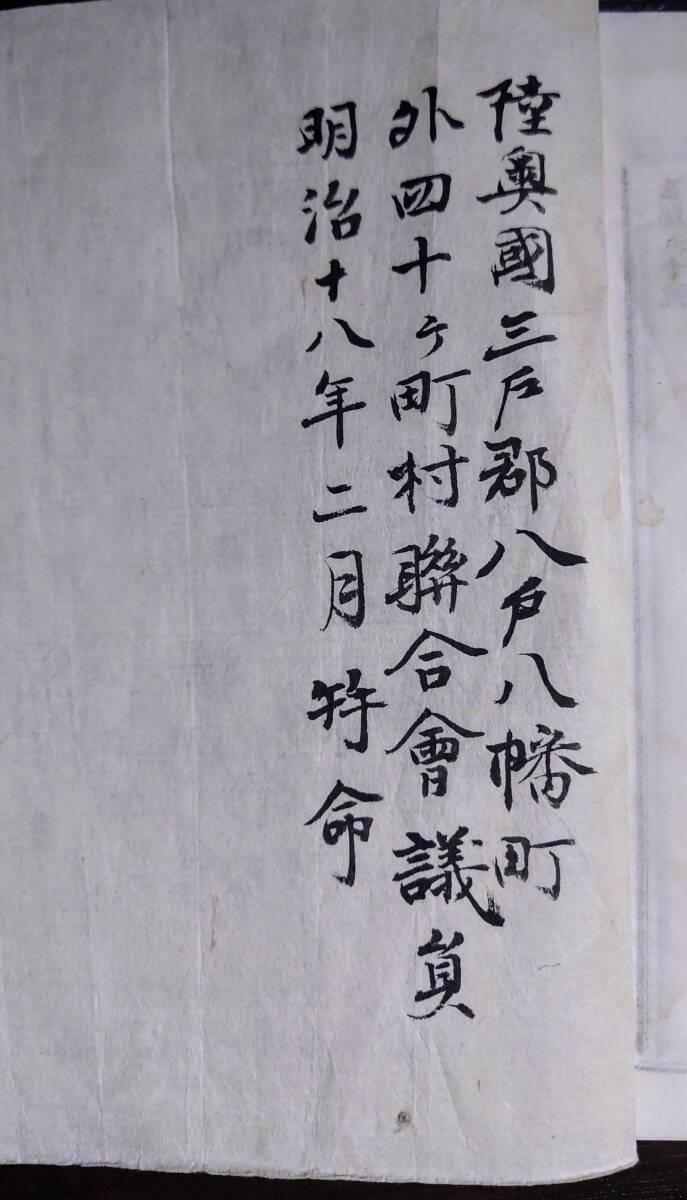 陸奥國三戸郡八戸八幡町
外四十ヶ町村聯合會議員
明治十八年二月特命